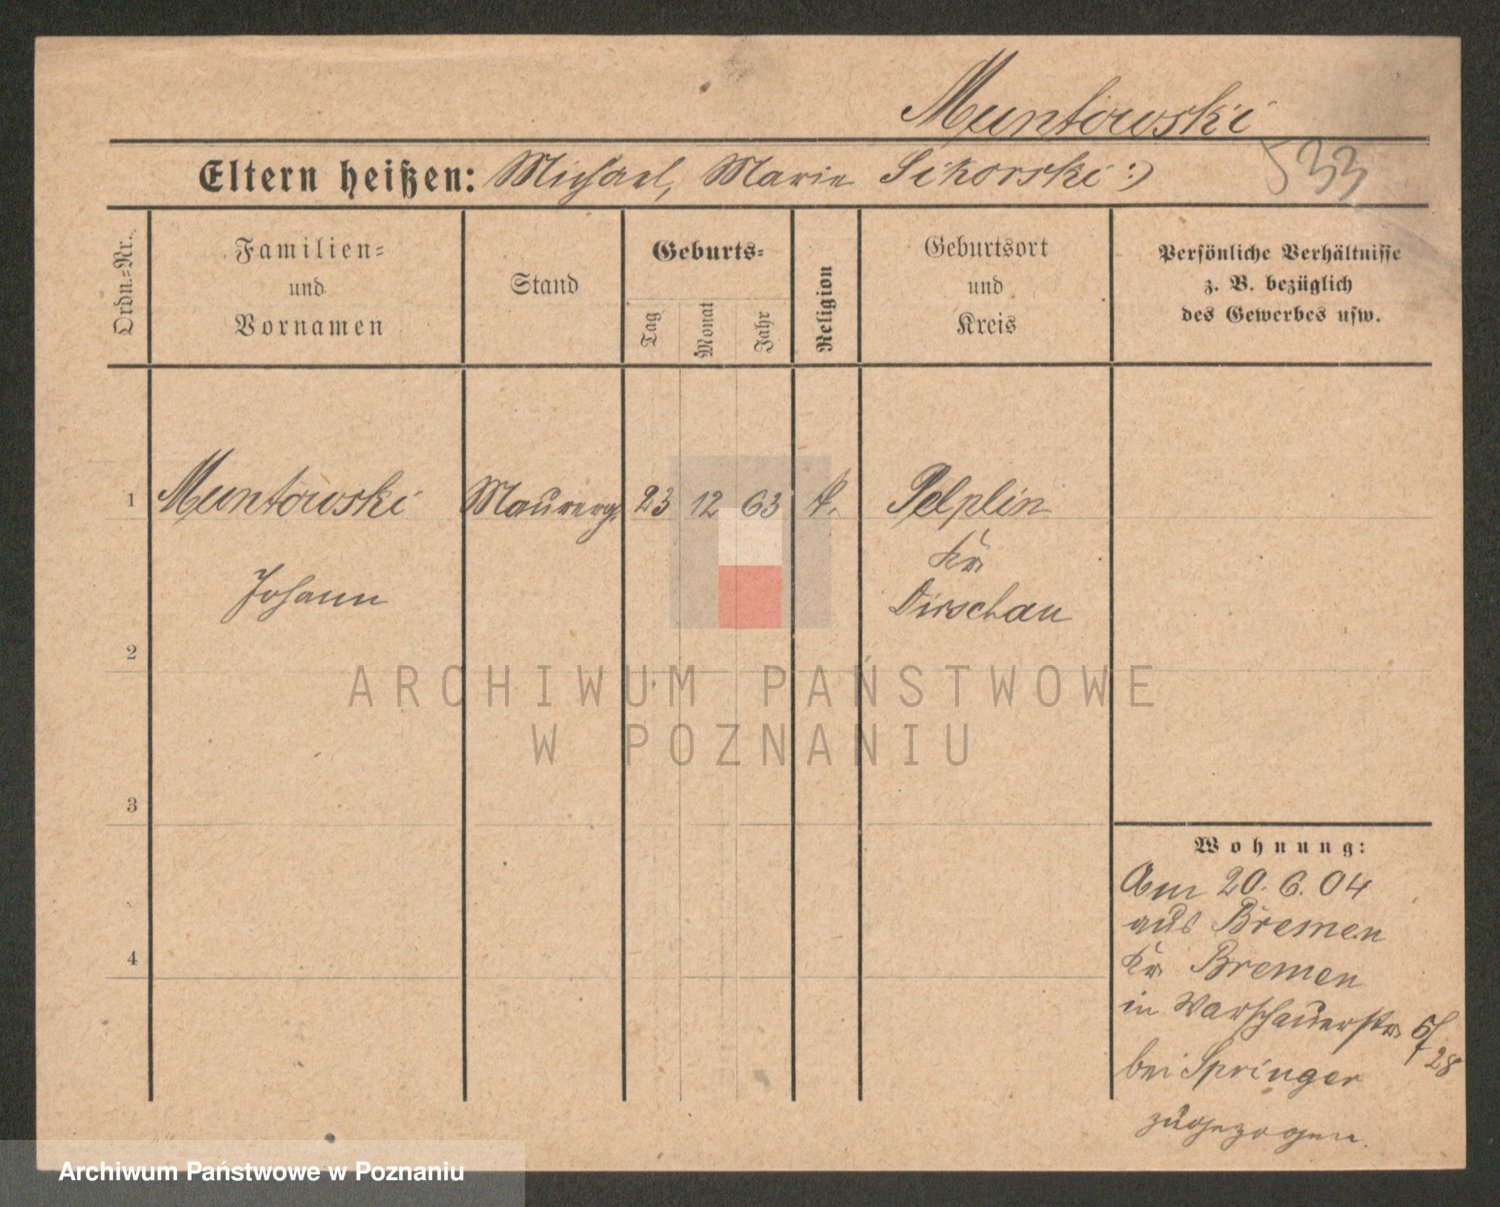 Muntowski
533
Eltern heißen: Michael, Marie Sikorski :)
Ordn.=Nr.
Familien=
und
Vornamen
Stand
Geburts=
Tag
Monat
Jahr
Religion
Geburtsort
und
Kreis
Persönliche Verhältnisse
z. B. bezüglich
des Gewerbes usw.
1 Muntowski Maurerg. 23 12 63 k. Pelplin
Kr.
Johann Dirschau
2
3
4
Wohnung:
Am 20. 6. 04
aus Bremen
Kr. Bremen
in Warschauerstr. 5/28
bei Springer
zugezogen.
ARCHIWUM PAŃSTWOWE
W POZNANIU
Archiwum Państwowe w Poznaniu